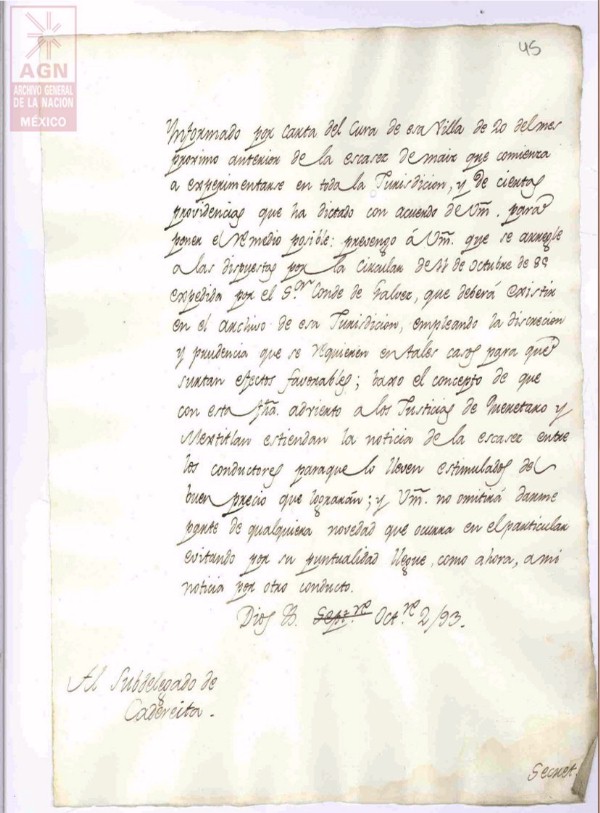 45
AGN
ARCHIVO GENERAL
DE LA NACION
MÉXICO
Ynformado por carta del Cura de esa Villa de 20 del mes
proximo anterior de la escasez de maiz que comienza
a experimentarse en toda la Jurisdicion, y de ciertas
providencias que ha dictado con acuerdo de Vm. para
poner el remedio posible: prevengo á Vm. que se arregle
a las dispuestas por la Circular de de Octubre de
expedida por el S.or Conde de Galvez, que deberá existir
en el archivo de esa Jurisdicion, empleando la discrecion
y prudencia que se requieren en tales casos para que
surtan efectos favorables; baxo el concepto de que
con esta fha. advierto a los Justicias de Queretaro y
Mextitlan estiendan la noticia de la escasez entre
los conductores paraque lo lleven estimulados del
buen precio que lograrán; y Vm. no omitirá darme
parte de qualquiera novedad que ocurra en el particular
evitando por su puntualidad llegue, como ahora, a mi
noticia por otro conducto.
Dios &. Sept.re Oct.re 2/93.
Al Subdelegado de
Cadereita.
Secret.